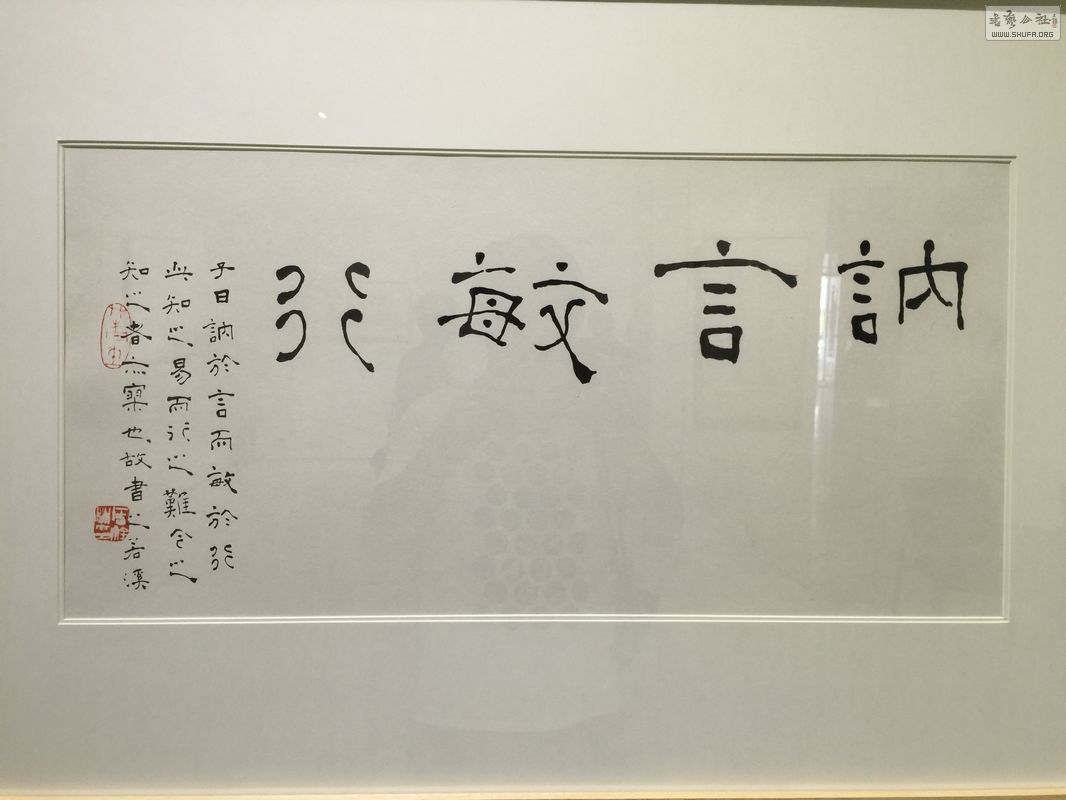 訥言敏行
子曰訥於言而敏於行
此知之易而行之難今之
知之者亦寡也故書之若溪
書藝公社
WWW.SHUFA.ORG